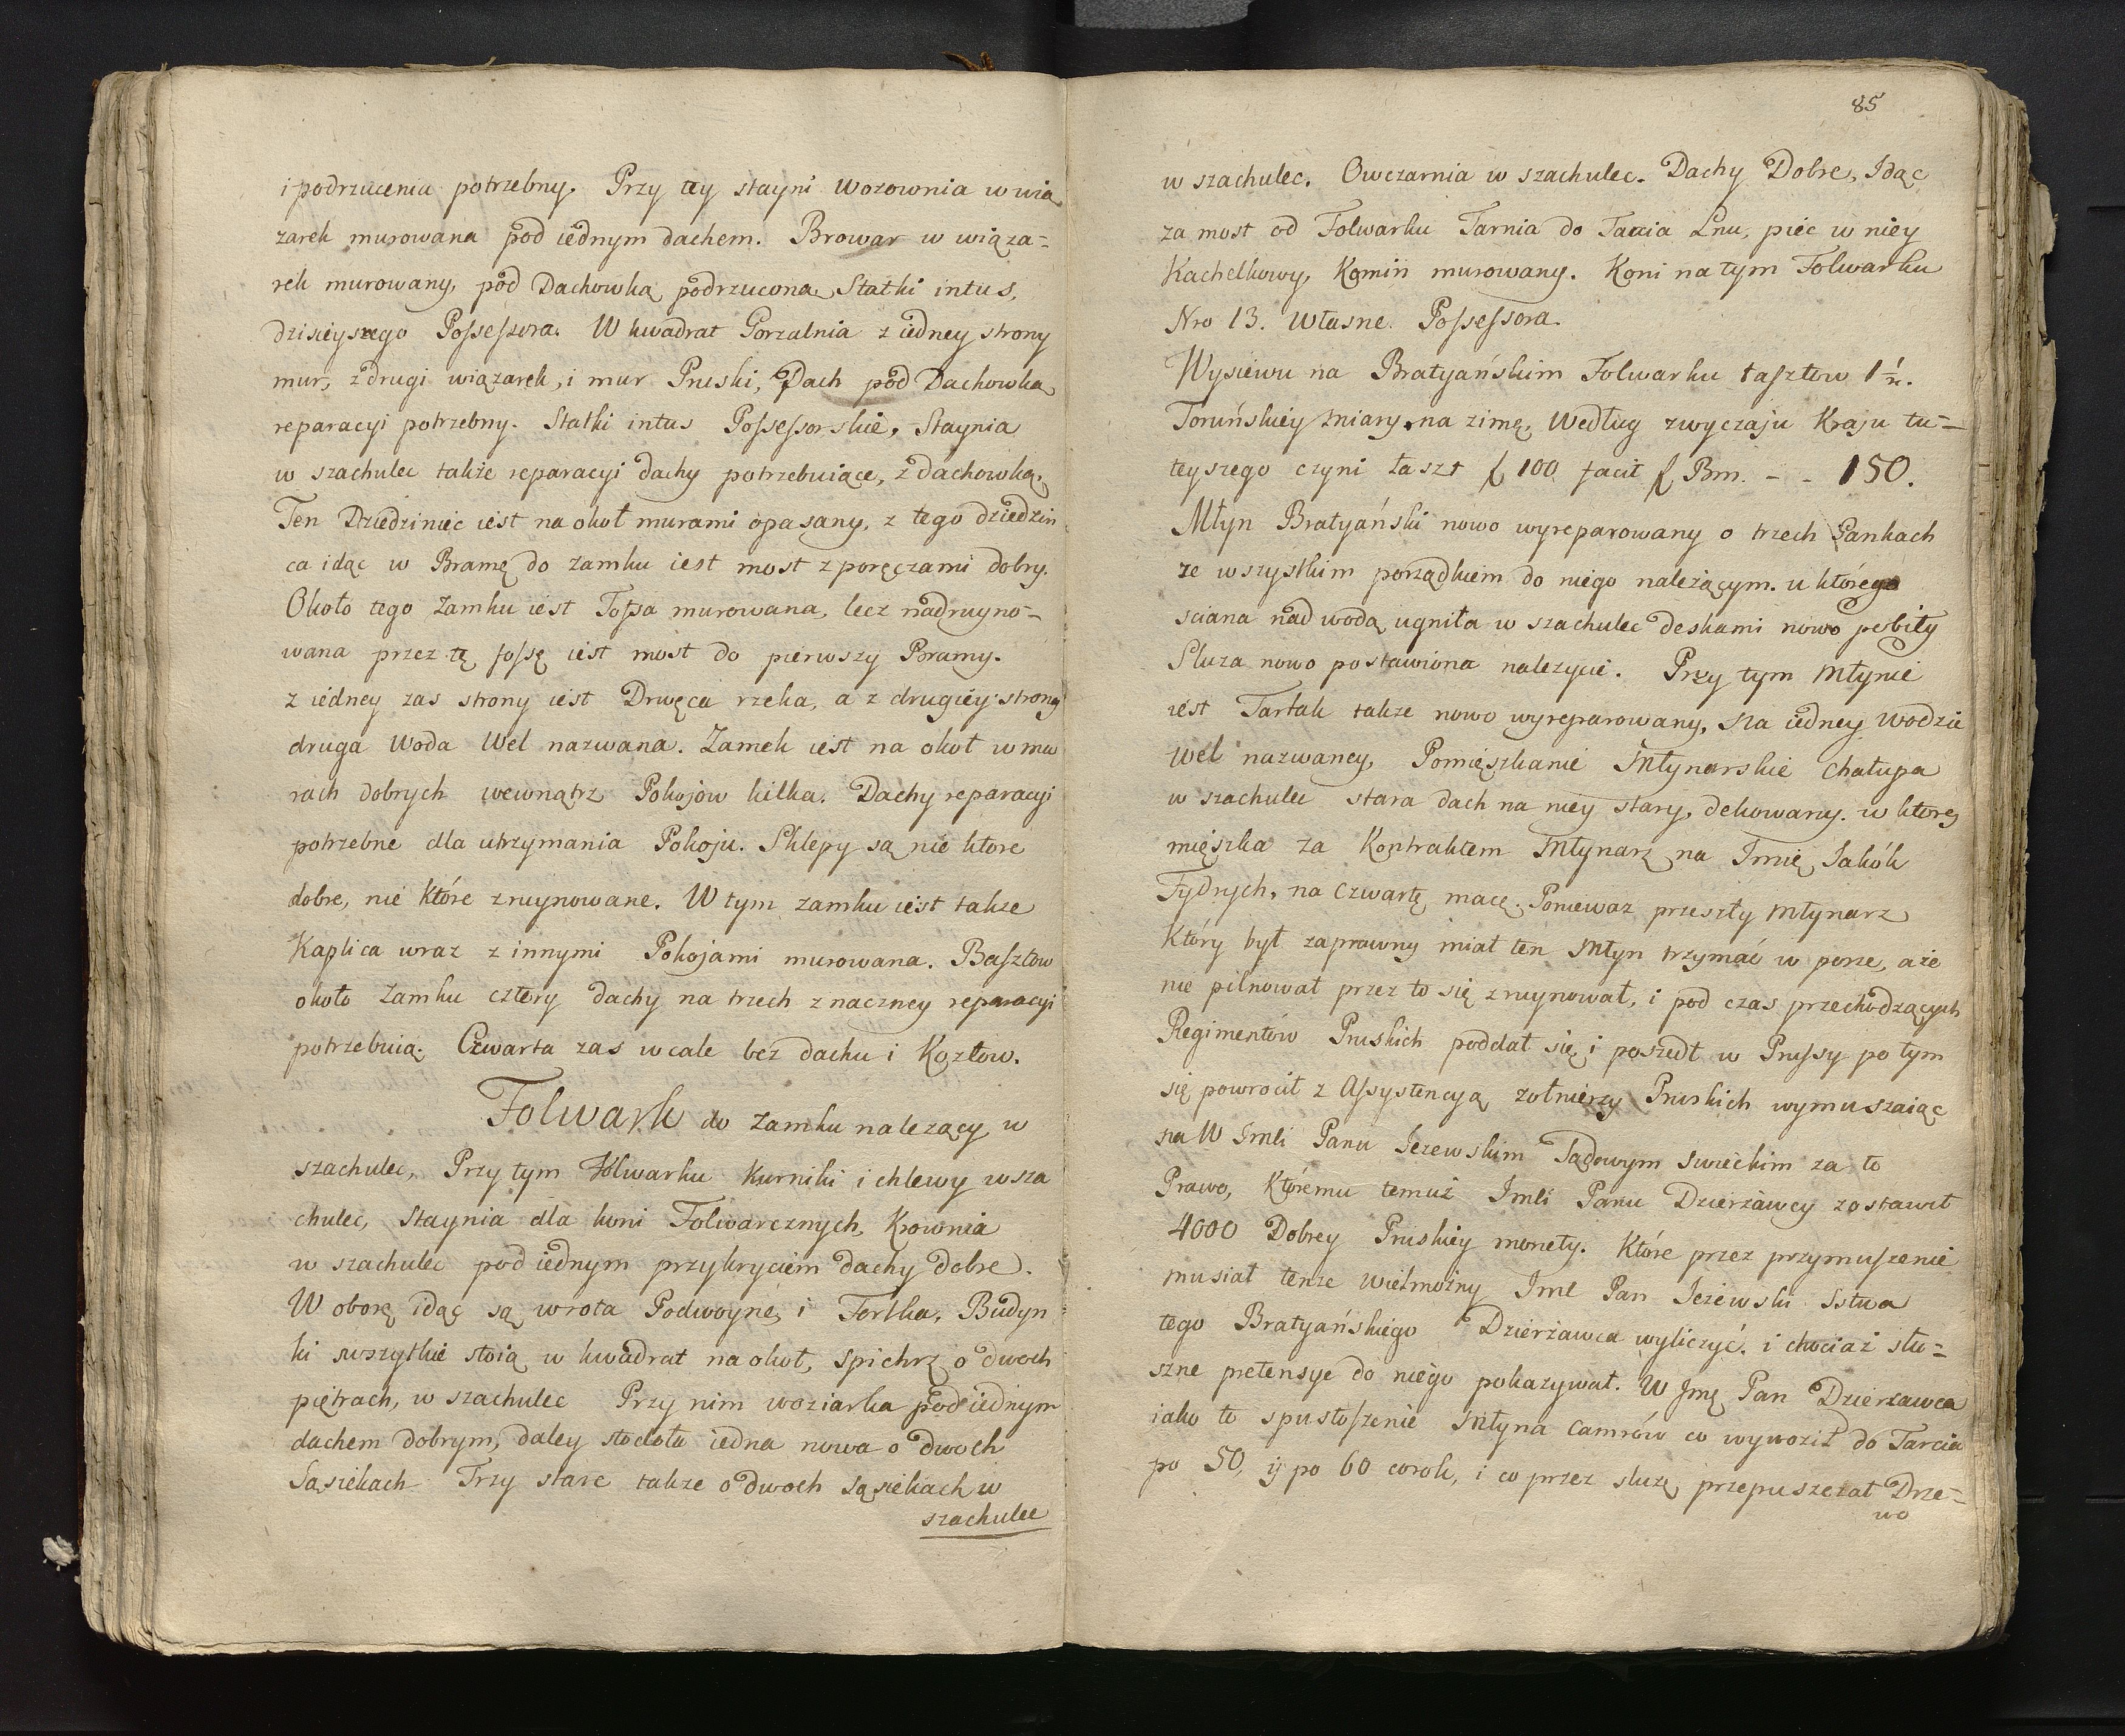 i podrzucenia potrzebny. Przy tey stayni wozownia w wią
zarek murowana pod iednym dachem. Browar w wiąza-
rek murowany, pod Dachowką podrzucona. Statki intus,
dzisieyszego Possessora. W kwadrat Gorzalnia z iedney strony
mur, z drugi wiązarek, i mur Pruski, Dach pod Dachowką
reparacyi potrzebny. Statki intus Possessorskie, Staynia
w szachulec także reparacyi dachy potrzebuiące, z dachowką.
Ten Dziedziniec iest na okoł murami opasany, z tego dziedzin
ca idąc w Bramę do zamku iest most z poręczami dobry.
Około tego Zamku iest Fossa murowana, lecz nadruyno-
wana przez tę fossę iest most do pierwszy Bramy.
z iedney zas strony iest Drwęca rzeka, a z drugiey strony
druga Woda Wel nazwana. Zamek iest na okoł w mu
rach dobrych wewnątrz Pokojow kilka. Dachy reparacyi
potrzebne dla utrzymania Pokoju. Sklepy są nie ktore
dobre, nie które zruynowane. W tym zamku iest takze
Kaplica wraz z innymi Pokojami murowana. Basztow
około Zamku cztery dachy na trzech znaczney reparacyi
potrzebuią. Czwarta zas wcale bez dachu i Kozłow.
Folwark do Zamku nalezący w
szachulec, Przy tym Folwarku Kurniki i chlewy w sza
chulec, Staynia dla koni Folwarcznych, Krownia
w szachulec pod iednym przykryciem dachy dobre.
W oborę idąc są wrota Podwoyne, i Fortka, Budyn
ki wszytkie stoią w kwadrat na okoł, spichrz o dwoch
piętrach, w szachulec Przy nim woziarka pod iednym
dachem dobrym, daley stodoła iedna nowa o dwoch
Sąsiekach Trzy stare takze o dwoch sąsiekach w
szachulec
85
w szachulec. Owczarnia w szachulec. Dachy Dobre, Idąc
za most od Folwarku Tarnia do Tarcia Lnu, piec w niey
Kachelkowy, Komin murowany. Koni na tym Folwarku
Nro 13. Własne Possessora.
Wysiewu na Bratyańskim Folwarku łasztow 1½.
Toruńskiey miary na zimę, Według zwyczaju Kraju tu-
teyszego czyni łaszt f 100 facit f Bm. - - 150.
Młyn Bratyański nowo wyreparowany o trzech Gankach
ze wszystkim porządkiem do niego należącym. u którego
sciana nad wodą ugniła w szachulec deskami nowo pobity
Sluza nowo postawiona nalezycie. Przy tym Młynie
iest Tartak takze nowo wyreparowany, na iedney wodzie
Wel nazwaney, Pomięszkanie Młynarskie Chałupa
w szachulec stara dach na niey stary, dekowany. w ktorey
mięszka za Kontraktem Młynarz na Imię Jakób
Fydrych, na czwartę macę. Poniewaz przeszły Młynarz
Który był zaprawny miał ten Młyn trzymać w porze, aże
nie pilnował przez to się zruynował, i pod czas przechodzących
Regimentów Pruskich poddał się i poszedł w Prussy po tym
się powrocił z Assystencyą zołnierzy Pruskich wymuszaiąc
na W Imci Panu Jezewskim Sądowym Swieckim za to
Prawo, Któremu temuż Imci Panu Dzierżawcy zostawił
4000 Dobrey Pruskiey monety. Które przez przymuszenie
musiał tenze Wielmożny Imć Pan Jeżewski Sstwa
tego Bratyańskiego Dzierżawca wyliczyć. i chociaż słu-
szne pretensye do niego pokazywał. W Jmć Pan Dzierżawca
iako to spustoszenie Młyna camrów co wywoził do Tarcia
po 50, ij po 60 corok, i co przez sluzę przepuszczał Drze-
wo